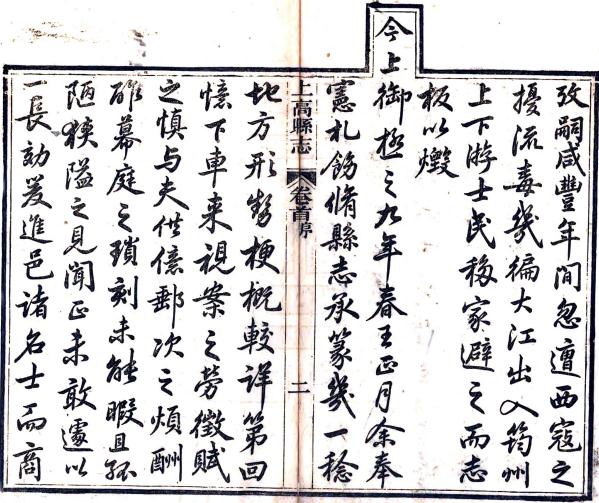 攷嗣咸豐年間忽遭西寇之
擾流毒幾徧大江出入筠州
上下游士民移家避之而志
板以燬
今上御極之九年春王正月余奉
憲札飭脩縣志承篆幾一稔
上高縣志 卷首 序 二
地方形勢梗概較詳第回
憶下車來視案之勞徵賦
之慎与夫供億郵次之煩酬
酢幕庭之瑣刻未能暇且孤
陋狹隘之見聞正未敢遽以
一長劾爰進邑諸名士而商